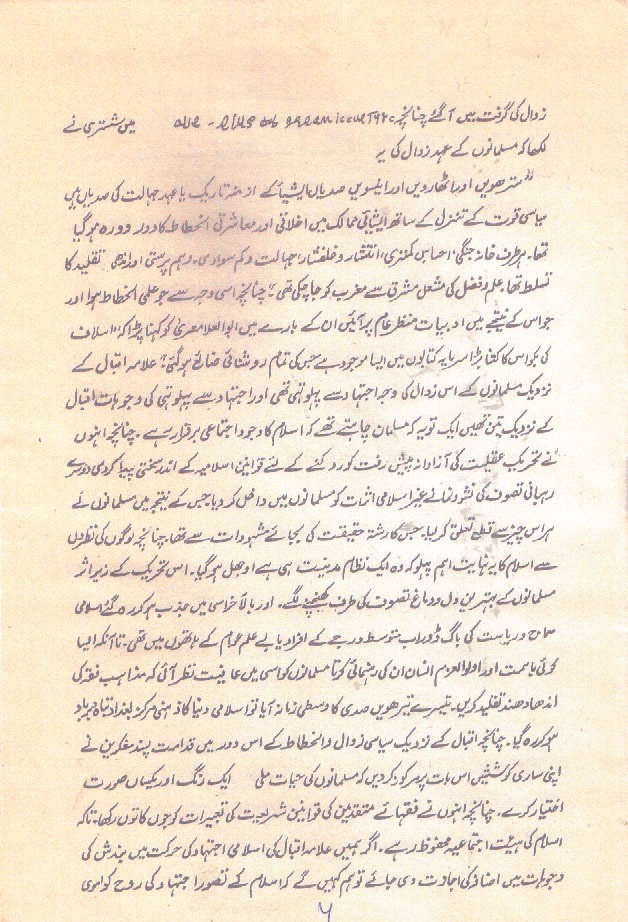 زوال کی گرفت میں آگئے چنانچہ میں شستری نے
لکھا کہ مسلمانوں کے عہد زوال کی یہ
"سترھویں اور اٹھارویں اور انیسویں صدیاں ایشیا کے ازمنہ تاریک یا عہد جہالت کی صدیاں ہیں
سیاسی قوت کے تنزل کے ساتھ ایشیائی ممالک میں اخلاقی اور معاشرتی انحطاط کا دور دورہ ہو گیا
تھا۔ ہر طرف خانہ جنگی، احساس کمتری، انتشار و خلفشار، جہالت و کم سوادی۔ وہم پرستی اور اندھی تقلید کا
تسلط تھا۔ علم و فضل کی مشعل مشرق سے مغرب کو جا چکی تھی"۔ چنانچہ اسی وجہ سے جو علمی انحطاط ہوا اور
جو اس کے نتیجے میں ادبیات منظر عام پر آئیں ان کے بارے میں ابوالعلا معریٰ کو کہنا پڑا کہ "اسلاف
کی بواس کا کتنا بڑا سرمایہ کتابوں میں ایسا موجود ہے جس کی تمام روشنائی ضائع ہو گئی"؛ علامہ اقبال کے
نزدیک مسلمانوں کے اس زوال کی وجہ اجتہاد سے پہلو تہی تھی اور اجتہاد سے پہلو تہی کی وجوہات اقبال
کے نزدیک تین تھیں ایک تو یہ کہ مسلمان چاہتے تھے کہ اسلام کا وجود اجتماعی برقرار رہے۔ چنانچہ انہوں
نے تحریک عقلیت کی آزادانہ پیش رفت کو روکنے کے لئے قوانین اسلامیہ کے اندر سختی پیدا کر دی دوسرے
رہبانی تصوف کی نشوونما نے غیر اسلامی اثرات کو مسلمانوں میں داخل کر دیا جس کے نتیجہ میں مسلمانوں نے
ہر اس چیز سے قطع تعلق کر لیا۔ جس کا رشتہ حقیقت کی بجائے مشہودات سے تھا۔ چنانچہ لوگوں کی نظروں
سے اسلام کا یہ نہایت اہم پہلو کہ وہ ایک نظام مدنیت بھی ہے اوجھل ہو گیا۔ اس تحریک کے زیر اثر
مسلمانوں کے بہترین دل و دماغ تصوف کی طرف کھنچنے لگے۔ اور بالآخر اسی میں جذب ہو کر رہ گئے اسلامی
سماج و ریاست کی باگ ڈور اب متوسط درجے کے افراد یا بے علم عوام کے ہاتھوں میں تھی۔ تاآنکہ ایسا
کوئی باہمت اور اولوالعزم انسان ان کی رہنمائی کرتا مسلمانوں کو اسی میں عافیت نظر آئی کہ مذاہب فقہ کی
اندھا دھند تقلید کریں۔ تیسرے تیرھویں صدی کا وسطی زمانہ آیا تو اسلامی دنیا کا ذہنی مرکز بغداد تباہ و برباد
ہو کر رہ گیا۔ چنانچہ اقبال کے نزدیک سیاسی زوال و انحطاط کے اس دور میں قدامت پسند مفکرین نے
اپنی ساری کوششیں اس بات پر مرکوز کر دیں کہ مسلمانوں کی حیات ملی ایک رنگ اور یکساں صورت
اختیار کرے۔ چنانچہ انہوں نے فقہائے متقدمین کی قوانین شریعت کی تعبیرات کو جوں کا توں رکھا۔ تاکہ
اسلام کی ہیئت اجتماعیہ محفوظ رہے۔ اگر ہمیں علامہ اقبال کی اسلامی اجتہاد کی حرکت میں بندش کی
وجوہات میں اضافہ کی اجازت دی جائے تو ہم کہیں گے کہ اسلام کے تصور اجتہاد کی روح کو اموی